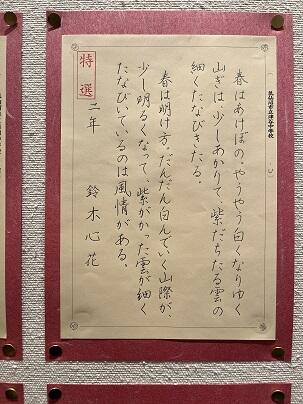 気仙沼市立津谷中学校
春はあけぼの。やうやう白くなりゆく
山ぎは、少しあかりて、紫だちたる雲の
細くたなびきたる。
春は明け方。だんだん白んでいく山際が、
少し明るくなって、紫がかった雲が細く
たなびいているのは風情がある。
特選
二年 鈴木心花